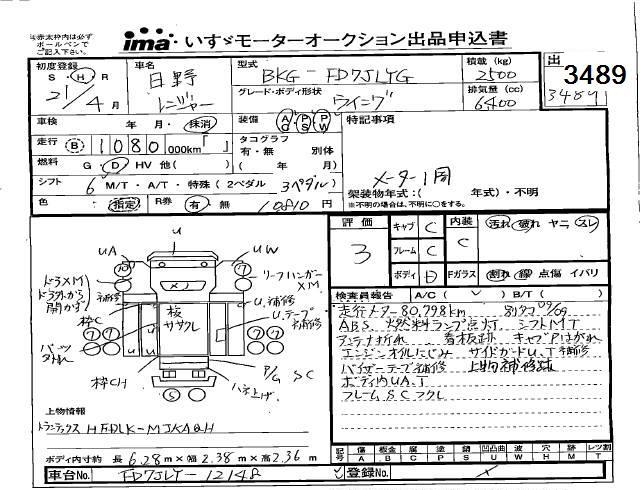 ※赤太枠内は必ず
ボールペンで
ご記入下さい
ima いすゞモーターオークション出品申込書
初度登録 S・H・R 21/4月
車名 日野 レンジャー
型式 BKG-FD7JLYG
グレード・ボディ形状 ウイング
積載(kg) 2500
排気量(cc) 6400
出
3489
34891
車検 年・月・抹消
装備 AC PS PW
特記事項
走行 B 1080 000km
タコグラフ 有・無 別体
燃料 G・D HV 他( )
( 年/ 月)
メーター1周
シフト 6 M/T・A/T・特殊(2ペダル 3ペダル)
架装物年式:( 年式)・不明
※不明の場合は、不明に○をする。
色 指定 R券 有・無 10810円
評価 3
キャブ C
フレーム C
ボディ D
内装 C
汚れ・破れ ヤニ・スレ
Fガラス 割れ・線・点傷 イバリ
検査員報告 A/C( ) B/T( )
走行メーター80,798km
ABS 燃料ランプ点灯 シフトMT
アンテナ折れ 看板跡 キャブPはがれ
エンジンオイルにじみ サイドガードU、T補修
バイザーテープ補修 上物補修跡
ボディ内UA、T
フレームSCフクレ
U
UA
UW
ドラXM
ドラ外から
開かず
補修
リーフハンガー
XM
枠C
板
ササクレ
U、補修
U、テープ
補修
枠CH
P/G SC
上物情報
トランテックス HFDLK-MJKAQH
ボディ内寸約 長 6.28m×幅 2.38m×高 2.36m
記号 傷A 板金B 腐C 塗P 錆S 凹凸曲U 波W 穴H 跡M レツ割T
車台No. FD7JLY-12148
登録No.